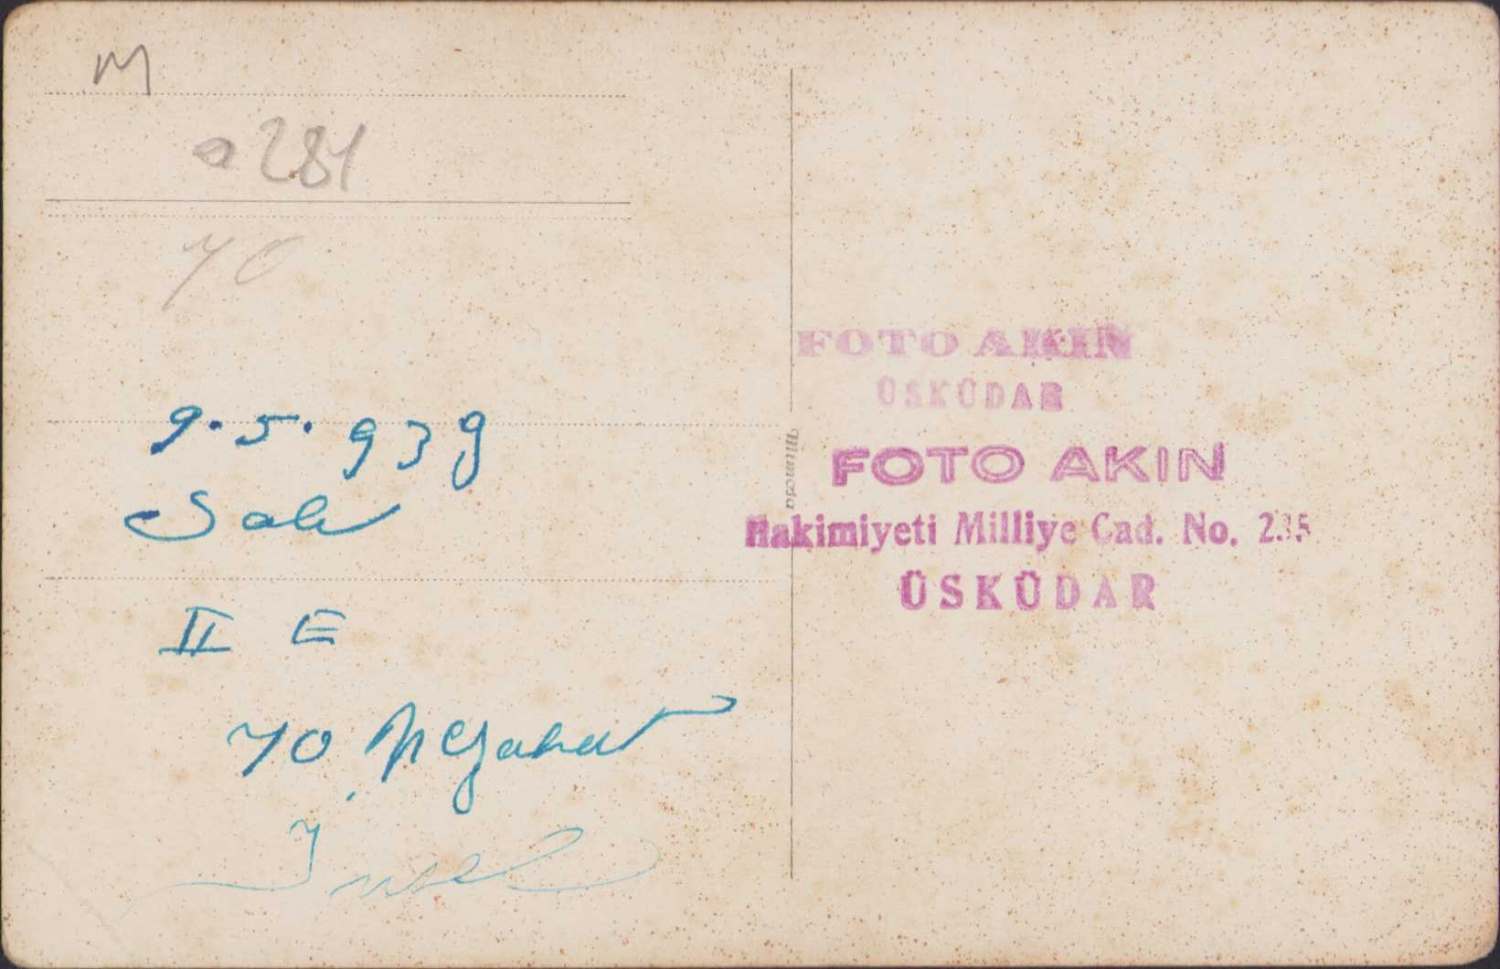 M
281
70
9.5.939
Salı
II E
70 Nejahat
İnsel
FOTO AKIN
ÜSKÜDAR
Mimosa
FOTO AKIN
Hakimiyeti Milliye Cad. No. 235
ÜSKÜDAR